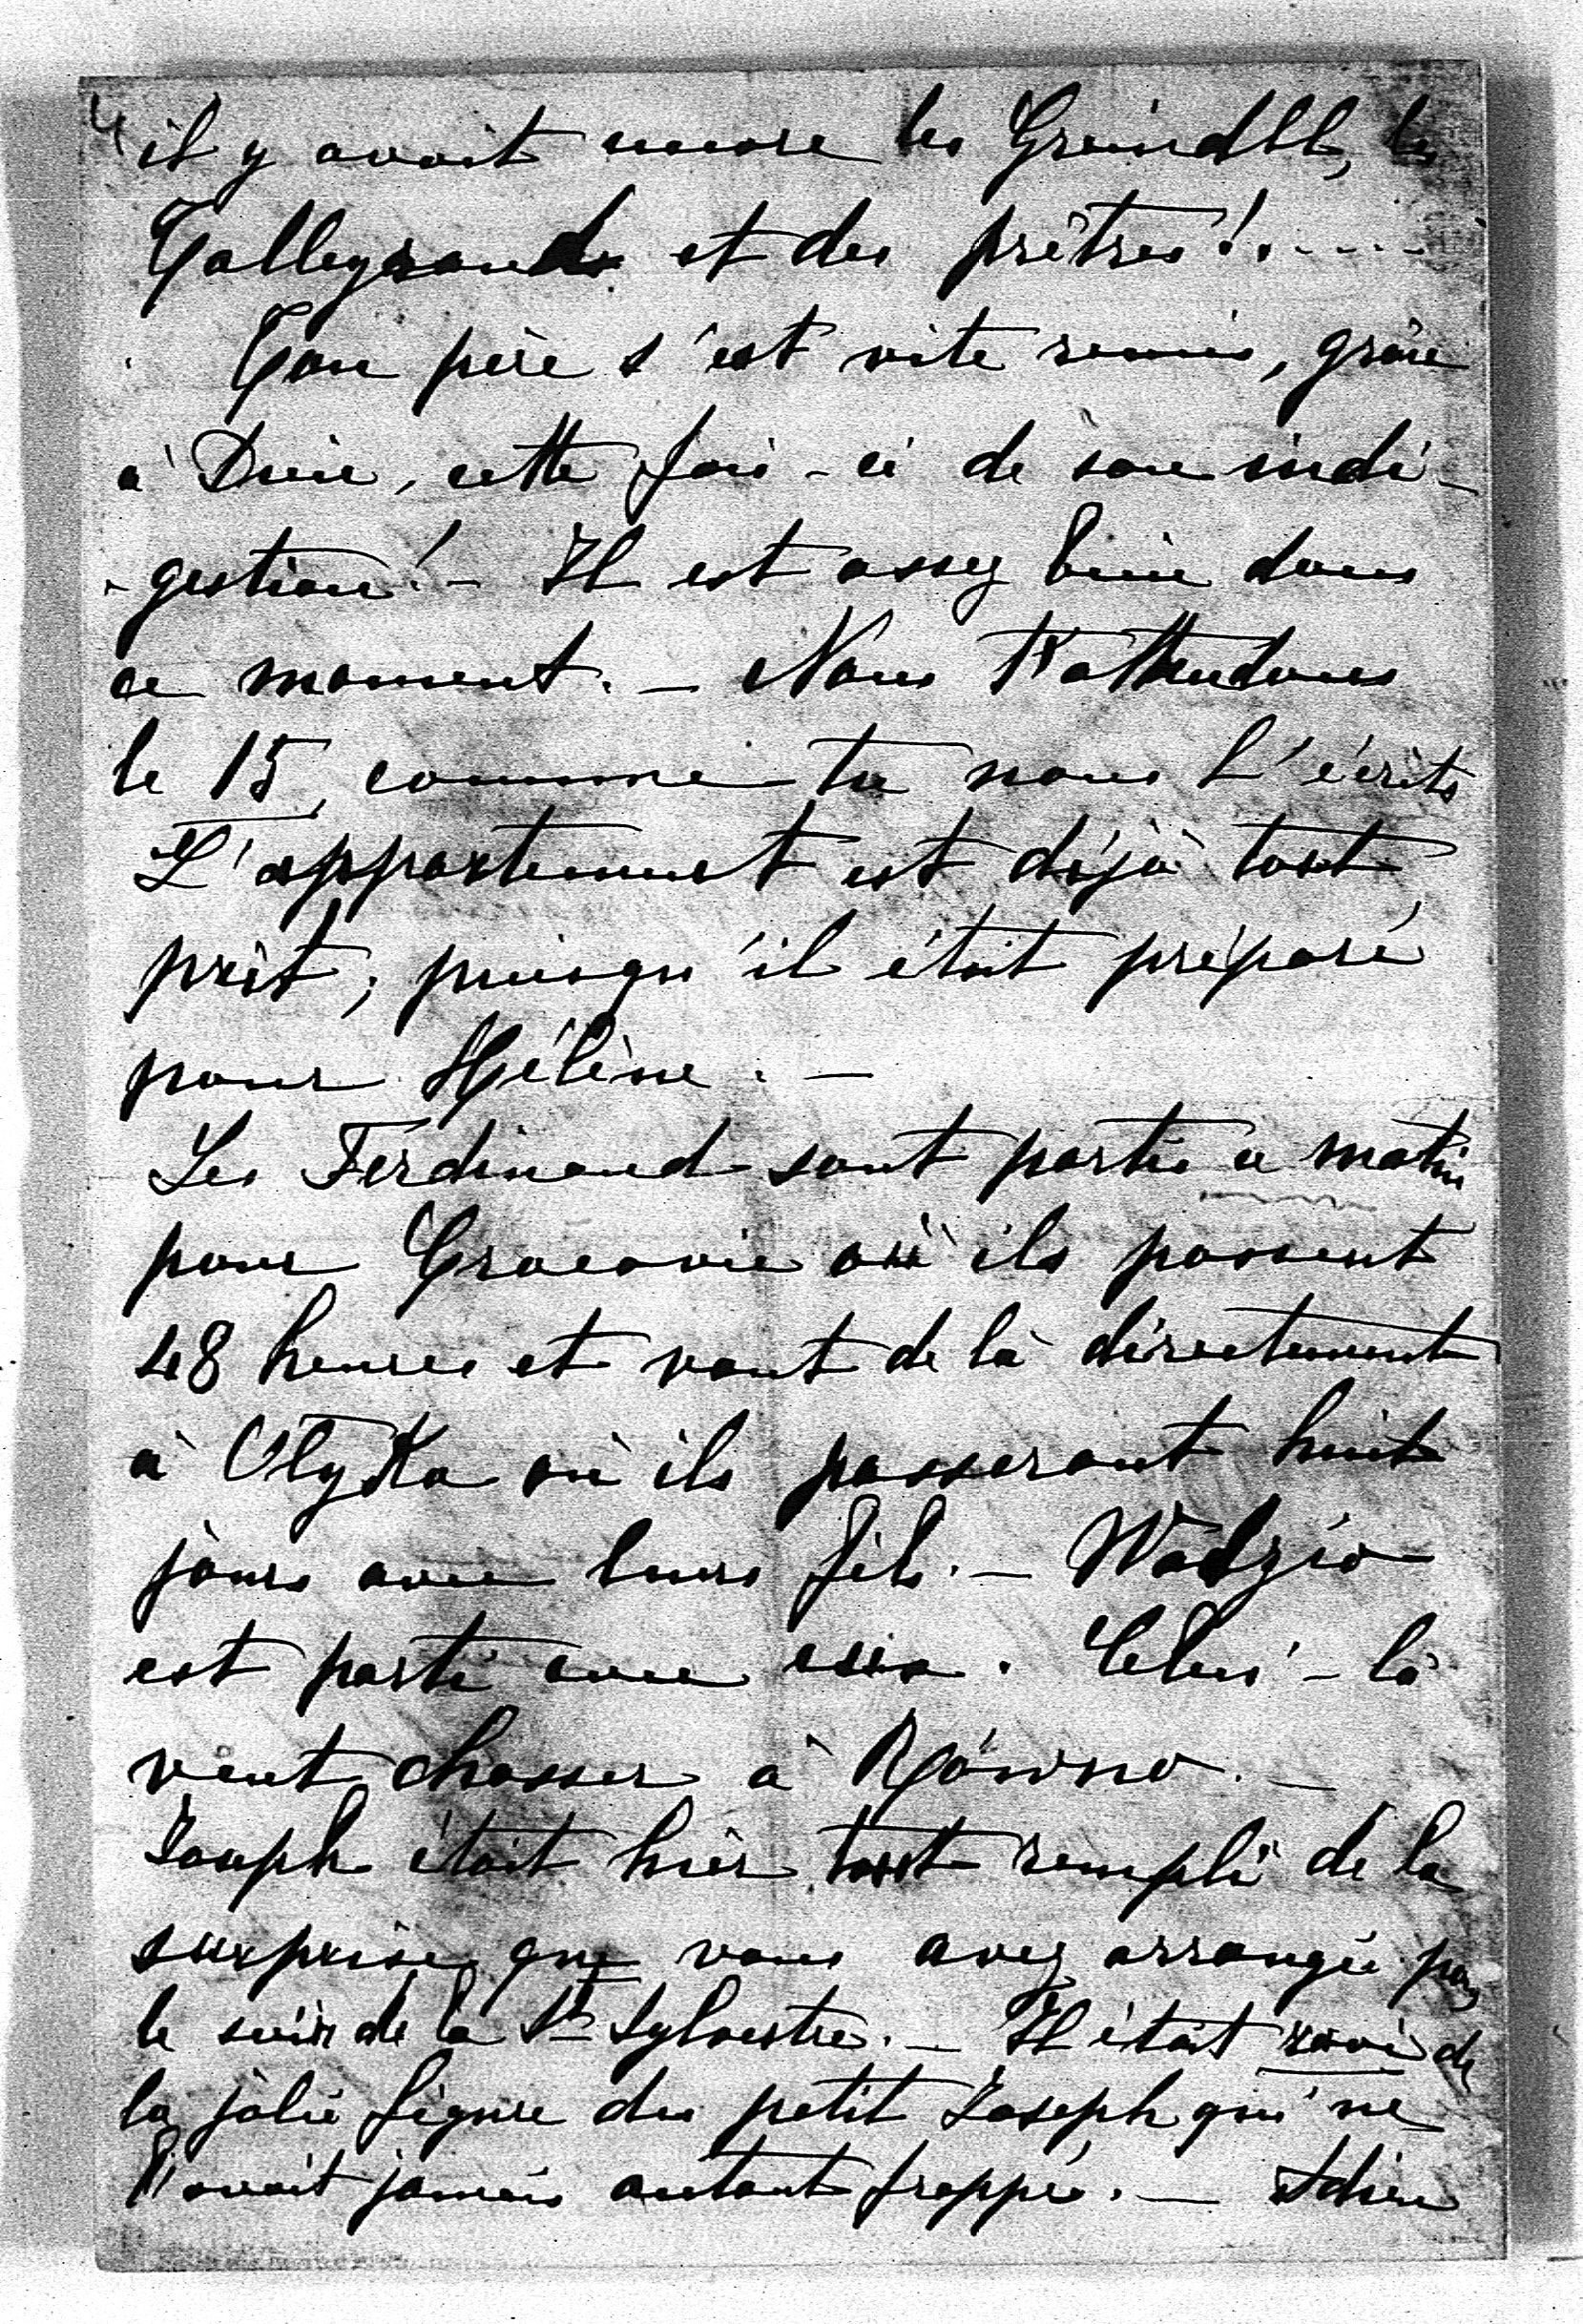 4 il y avait encore les Greindll, les
Talleyrands et des prêtres!....
Ton père s'est vite remis, grâce
à Dieu, cette fois-ci de son indi-
-gestion! - Il est assez bien dans
ce moment. - Nous t'attendons
le 15, comme tu nous l'écrits
L'appartement est déjà tout
prêt, puisqu'il était préparé
pour Hélène. -
Les Ferdinand sont partis ce matin
pour Cracovie où ils passent
48 heures et vont de là directement
à Olyka où ils passeront huit
jours avec leurs fils. - Wadzio
est parti avec eux. Celui-là
veut chasser à Równo. -
Joseph était hier tout rempli de la
surprise que vous avez arrangée pour
le soir de la St Sylvestre. - Il était ravi de
la jolie figure du petit Joseph qui ne
l'avait jamais autant frappé. - Adieu